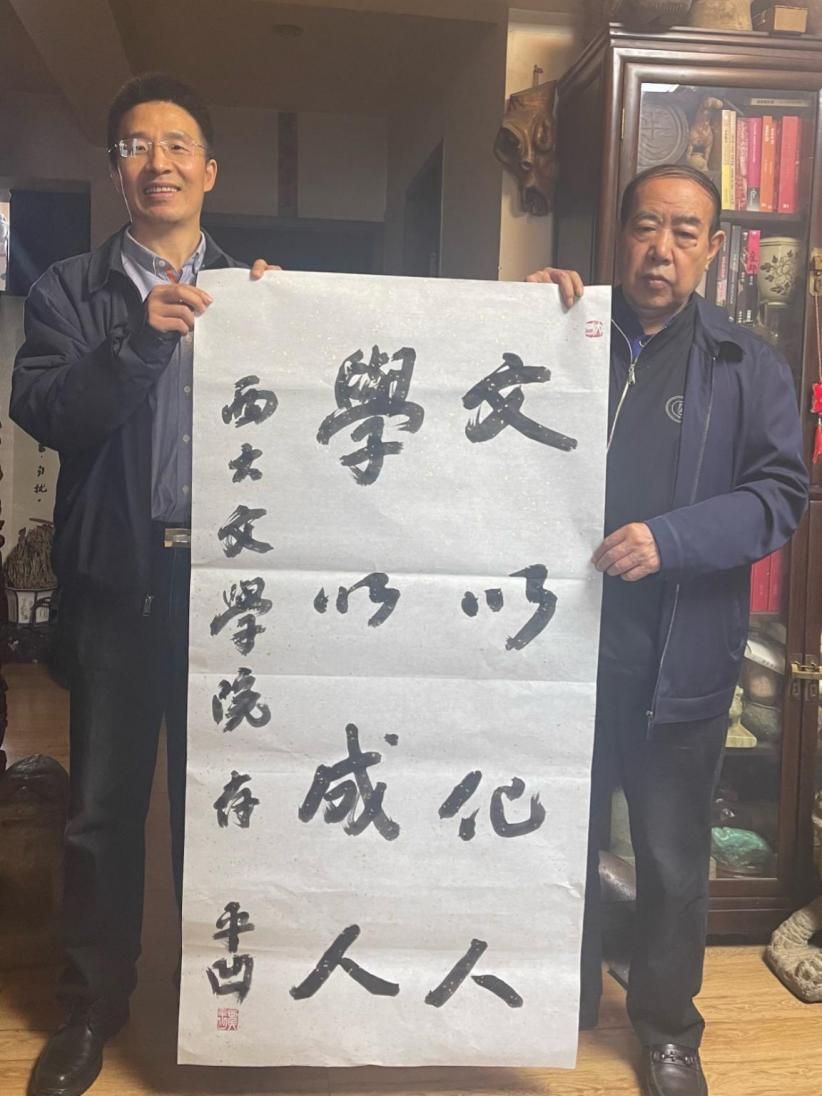 文以化人
學以成人
西大文學院存 平凹
自扰。